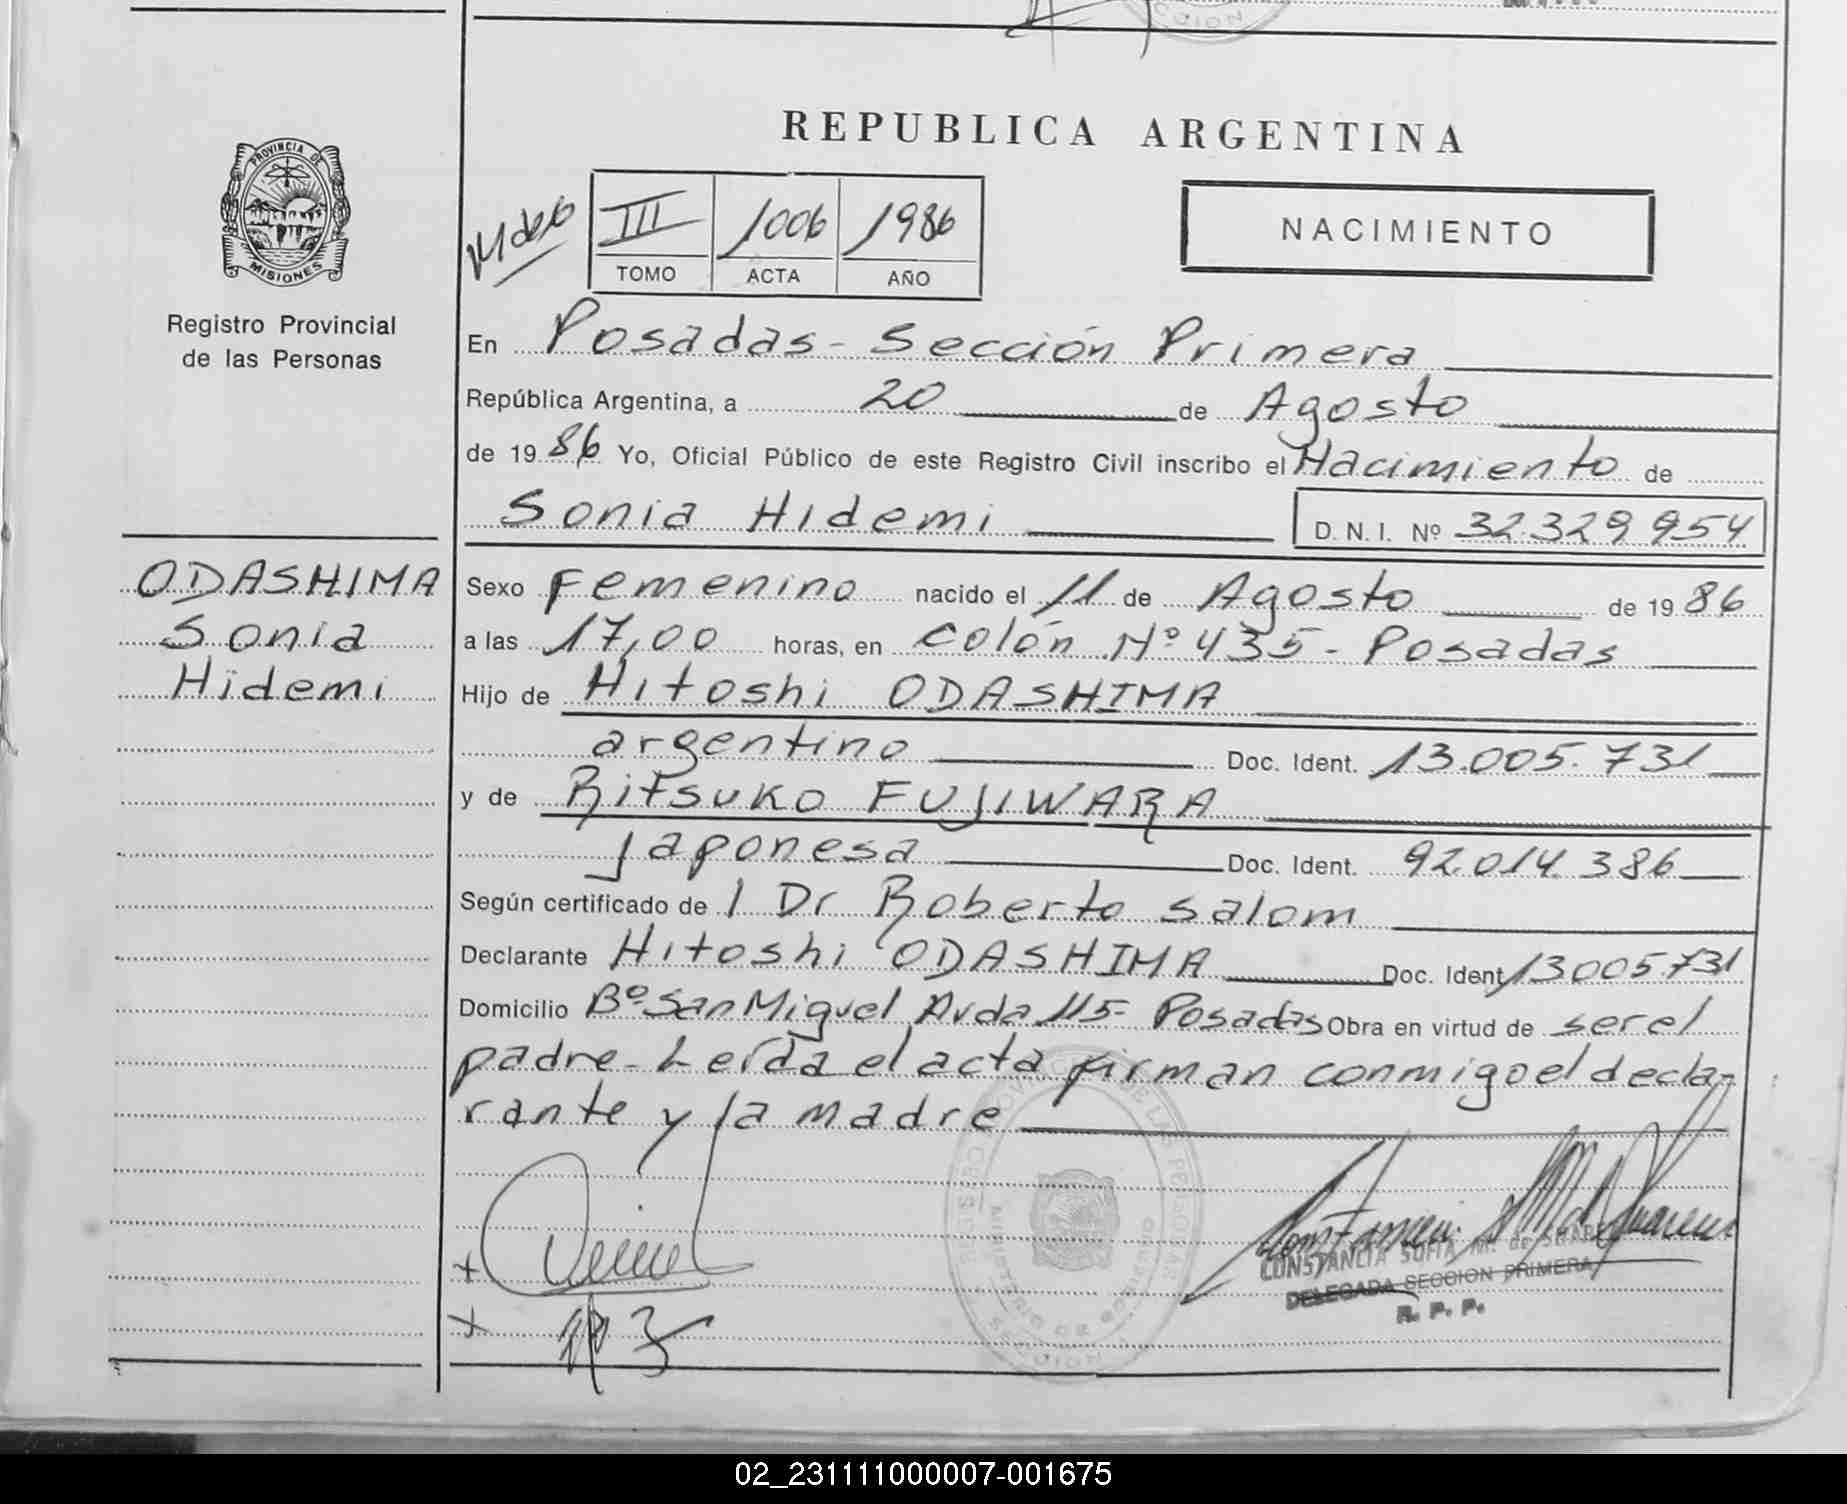 REPUBLICA ARGENTINA
PROVINCIA DE
MISIONES
Registro Provincial
de las Personas
III 1006 1986
TOMO ACTA AÑO
NACIMIENTO
En Posadas - Sección Primera
República Argentina, a 20 de Agosto
de 1986 Yo, Oficial Público de este Registro Civil inscribo el Nacimiento de
Sonia Hidemi D. N. I. Nº 32.329.954
ODASHIMA
Sonia
Hidemi
Sexo Femenino nacido el 11 de Agosto de 1986
a las 17,00 horas, en Colón Nº 435 - Posadas
Hijo de Hitoshi ODASHIMA
argentino Doc. Ident. 13.005.731
y de Ritsuko FUJIWARA
japonesa Doc. Ident. 92.014.386
Según certificado de l Dr Roberto Salom
Declarante Hitoshi ODASHIMA Doc. Ident 13005731
Domicilio Bº San Miguel Avda 115 - Posadas Obra en virtud de ser el
padre - Leída el acta firman conmigo el decla-
rante y la madre
CONSTANCIA SOFIA M. de SUAREZ
DELEGADA SECCION PRIMERA
R. P. P.
02_231111000007-001675